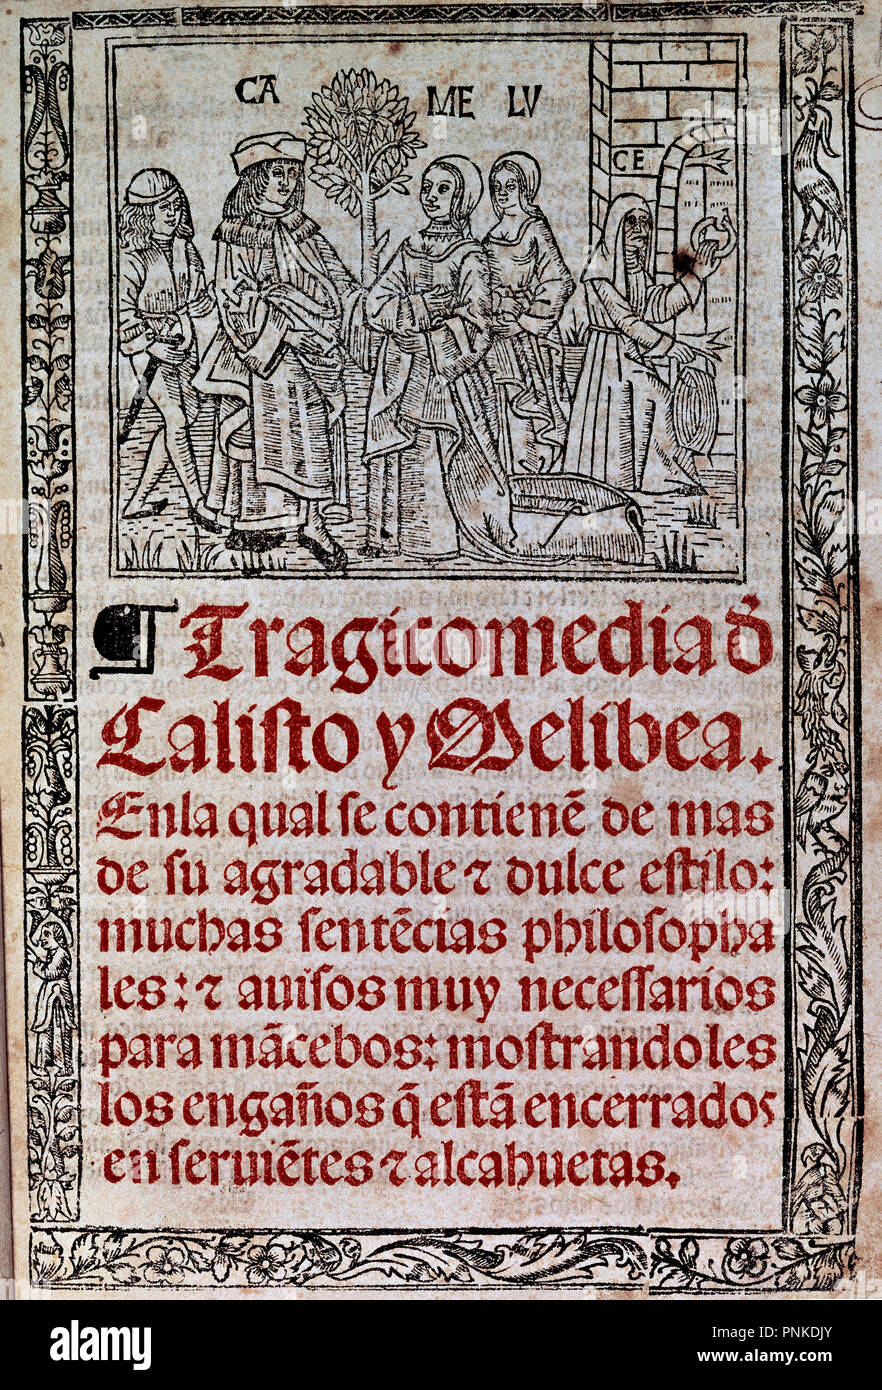 CA
ME LV
CE
¶ Tragicomedia đ
Calisto y Melibea.
Enla qual se contienẽ de mas
de su agradable ⁊ dulce estilo:
muchas sentẽcias philosopha
les: ⁊ auisos muy necessarios
para mãcebos: mostrandoles
los engaños q̃ estã encerrados
en seruiẽtes ⁊ alcahuetas.
alamy
Image ID: PNKDJY
www.alamy.com